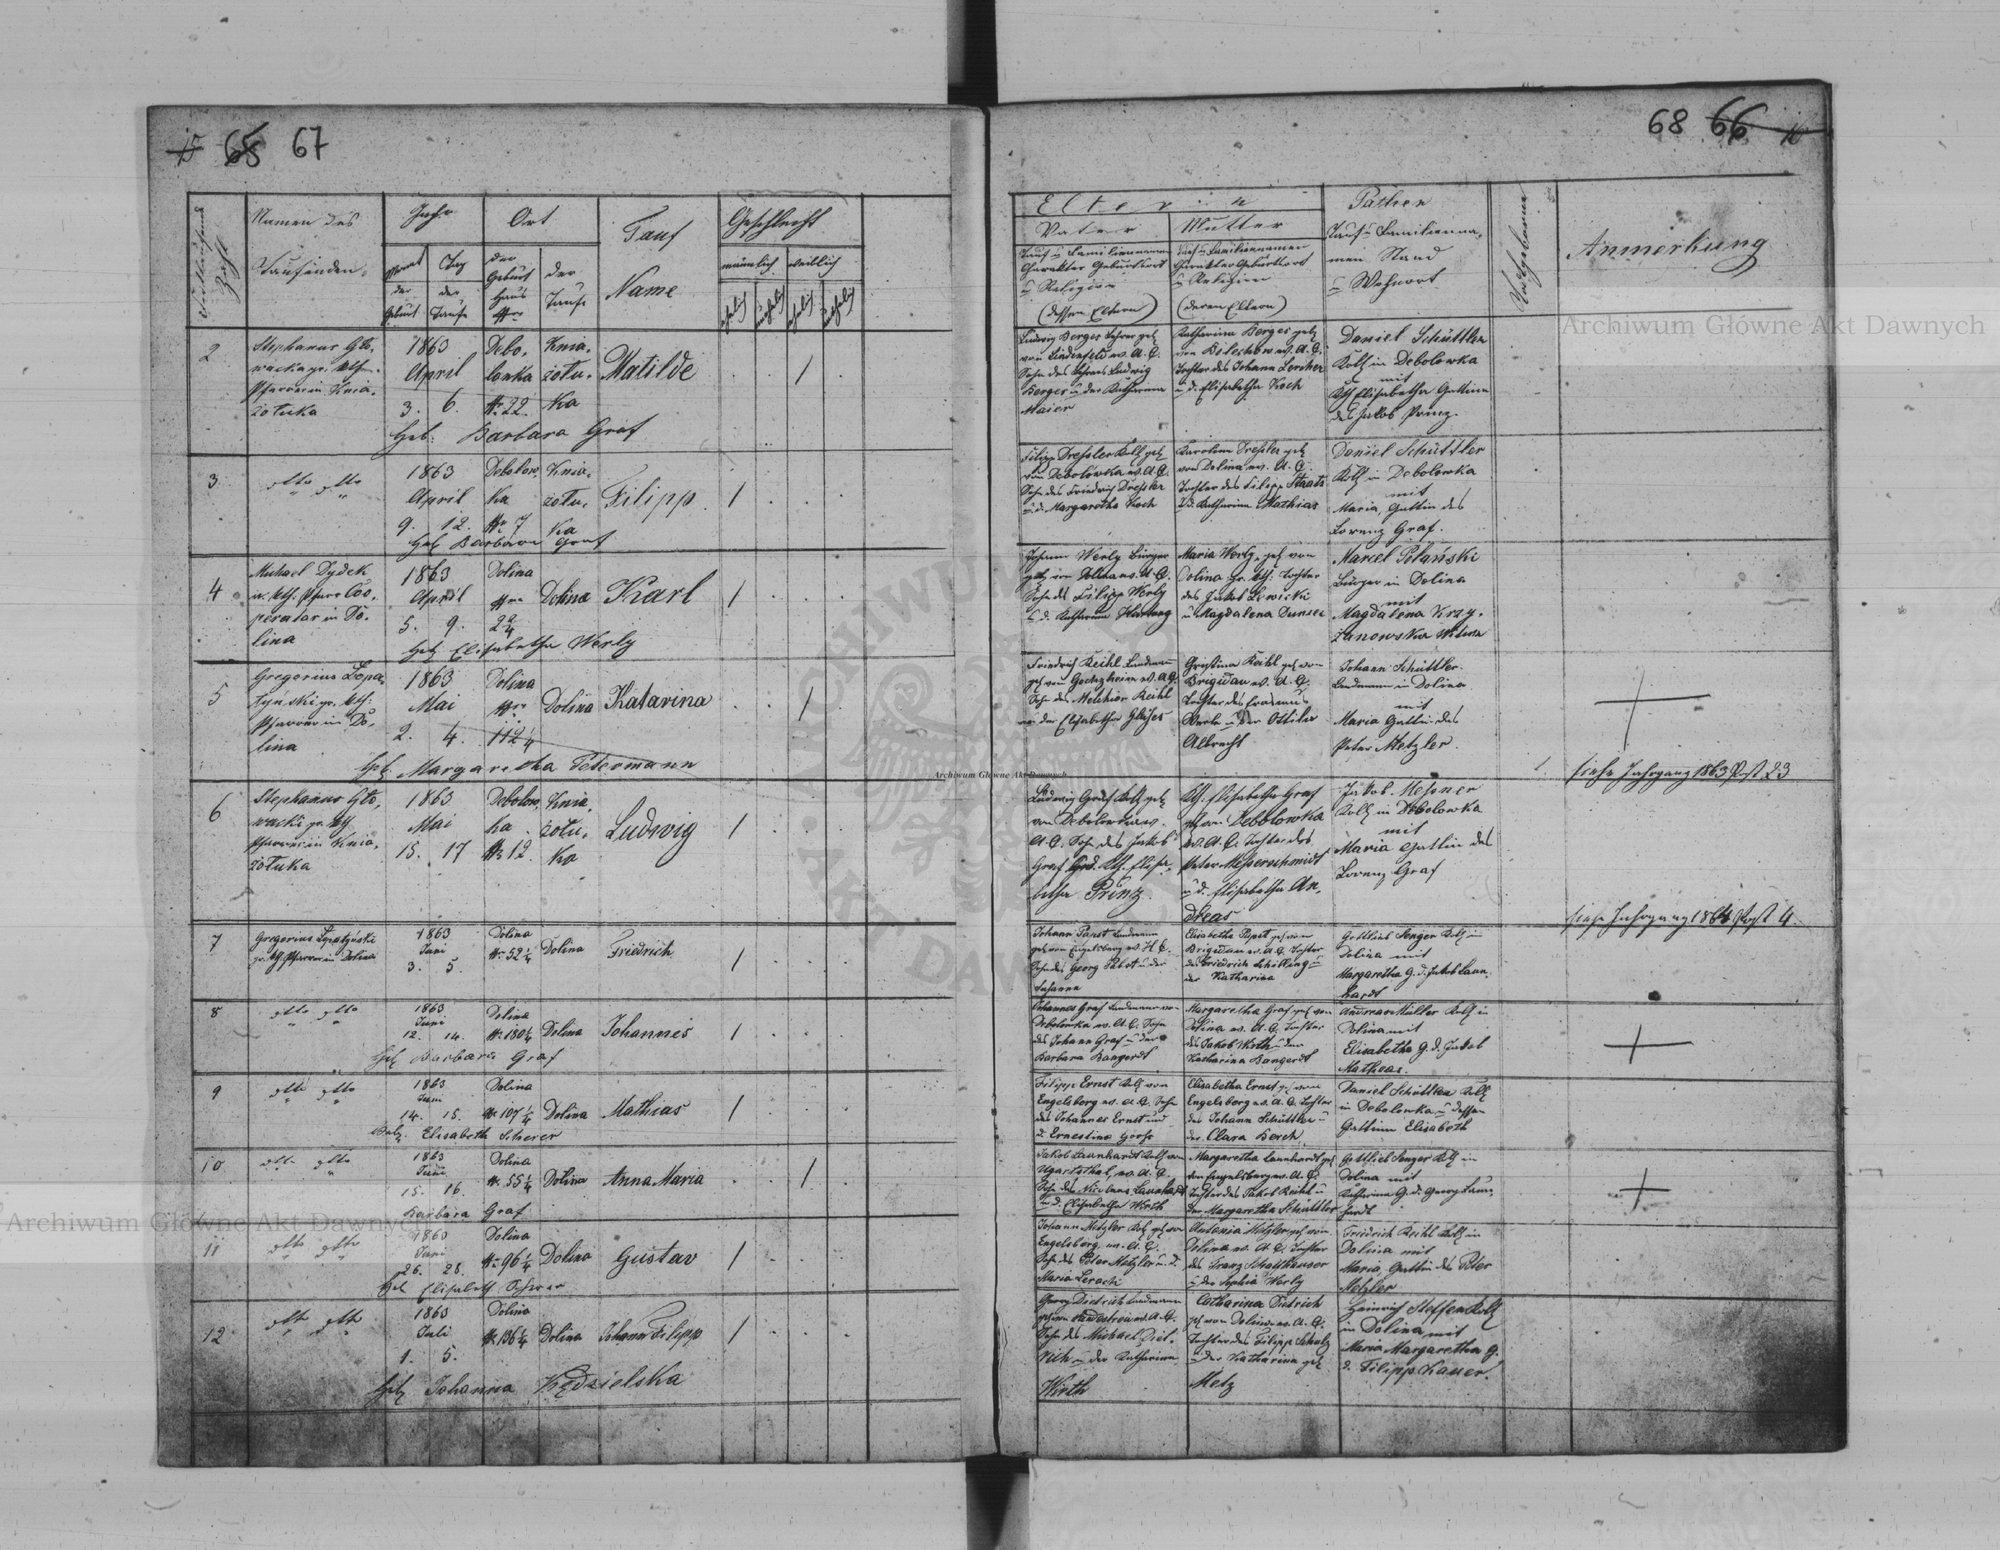 15 65 67
Namen des
Taufenden
Jahr
Ort
Tauf
Name
Geschlecht
männlich weiblich
Monat Tag
der der
Geburt Taufe
der
Geburt
Haus
Nro
der
Taufe
2
Stephanus Gło-
wacki gr. kth.
Pfarrer in Knia-
zoluka
1863
April
3. 6.
Debo-
lowka
Nr. 22.
Knia-
zolu-
ka
Matilde
Heb. Barbara Graf
3
dtto dtto
1863
April
9. 12.
Debolow-
ka
Nr 7
Knia-
zolu-
ka
Filipp
Heb. Barbara Graf
4
Michael Dydek
r. kth. Pfarr Coo-
perator in Do-
lina
1863
April
5. 9.
Dolina
Nro
22/4
Dolina
Karl
Heb. Elisabetha Werly
5
Gregorius Łopa-
tyński gr. kth.
Pfarrer in Do-
lina
1863
Mai
2. 4.
Dolina
Nro
112/4
Dolina
Katarina
Heb. Margaretha Petermann
6
Stephanus Gło-
wacki gr. kth.
Pfarrer in Knia-
zoluka
1863
Mai
15. 17
Debolow-
ka
Nr 12.
Knia-
zolu-
ka
Ludwig
7
Gregorius Łopatyński
gr. kth. Pfarrer in Dolina
1863
Juni
3. 5.
Dolina
Nr. 52 1/4
Dolina
Friedrich
8
dtto dtto
1863
Juni
12. 14.
Dolina
Nr. 180 1/4
Dolina
Johannes
Heb. Barbara Graf
9
dtto dtto
1863
Juni
14. 15.
Dolina
Nr. 107 1/4
Dolina
Mathias
Elisabeth Scherer
10
dtto dtto
1863
Juni
15. 16.
Dolina
Nr. 55 1/4
Dolina
Anna Maria
Barbara Graf
11
dtto dtto
1863
Juni
26. 28.
Dolina
Nr 96 1/4
Dolina
Gustav
Heb. Elisabeth Scherer
12
dtto dtto
1863
Juli
1. 5.
Dolina
Nr 136 1/4
Dolina
Johann Filipp
Heb. Johanna Kędzielska
68 66 16
Eltern
Vater
Mutter
Tauf u Familiennamen
Charakter Geburtsort
u Religion
(dessen Eltern)
Tauf u Familiennamen
Charakter Geburtsort
u Religion
(deren Eltern)
Pathen
Tauf u Familienna-
men Stand
u Wohnort
Anmerkung
Ludwig Berges Lehrer geb.
von Lindenfeld ev. A. C.
Sohn des Lehrers Ludwig
Berges u der Katharina
Maier
Katharina Berges geb.
von Bolechow ev. A. C.
Tochter des Johann Lercher
u d. Elisabetha Koch
Daniel Schüttler
Kol. in Debolowka
mit
Elisabetha Gattinn
des Jakob Prinz.
Filipp Dressler Kol. geb.
von Debolowka ev. A. C.
Sohn des Friedrich Dressler
u d. Margaretha Koch
Karolina Dressler geb.
von Dolina ev. A. C.
Tochter des Filipp Staats
u d. Katharina Mathias
Daniel Schüttler
Kol. in Debolowka
mit
Maria, Gattin des
Lorenz Graf.
Johann Werly Bürger
geb. in Dolina ev. A. C.
Sohn des Filipp Werly
u d. Katharina Hartung
Maria Werly, geb. von
Dolina gr. kth. Tochter
des Jakob Lewicki
u Magdalena
Marcel Polański
Bürger in Dolina
mit
Magdalena Krzy-
żanowska Witwe
Friedrich Keihl Landmann
Sohn des Melchior Keihl
u der Elisabetha
Cristina Keihl geb. von
Brigidau ev. A. C.
Tochter des Erasmus
u der Ottilia
Albrecht
Johann Schüttler
Landmann in Dolina
mit
Maria Gattin des
Peter Metzler.
siehe Jahrgang 1863 Post 23
Ludwig Graf Kol. geb.
von Debolowka ev.
A. C. Sohn des Jakob
Graf und Elisa-
betha Prinz.
Elisabetha Graf
geb. von Debolowka
ev. A. C. Tochter des
Peter Messerschmidt
u d. Elisabetha An-
dreas
Jakob Messner
Kol. in Debolowka
mit
Maria Gattin des
Lorenz Graf
siehe Jahrgang 1864 Post 4.
Johann Pabst Landmann
geb. von Engelsberg ev. H. C.
Sohn des Georg Pabst u der
Susanna
Elisabetha Pabst geb. von
Brigidau ev. A. C. Tochter
des Friedrich Schilling u
der Katharina
Gottlieb Senger Kol. in
Dolina mit
Margaretha G. d. Jakob Laun-
hardt
Johannes Graf Landmann von
Debolowka ev. A. C. Sohn
des Johann Graf u der
Barbara Bangerdt
Margaretha Graf geb. von
Dolina ev. A. C. Tochter
des Jakob Wirth u der
Katharina Bangerdt
Andreas Müller Kol. in
Dolina mit
Elisabetha G. d. Jakob
Mathias.
Filipp Ernst Kol. von
Engelsberg ev. A. C. Sohn
des Johannes Ernst und
d. Ernestina
Elisabetha Ernst geb. von
Engelsberg ev. A. C. Tochter
des Johann Schüttler u
der Clara Borch
Daniel Schüttler Kol.
in Debolowka u dessen
Gattinn Elisabeth
Jakob Launhardt Kol. von
Ugartsthal, ev. A. C.
Sohn des Nicolaus Launhardt
u d. Elisabetha Wirth
Margaretha Launhardt geb.
von Engelsberg ev. A. C.
Tochter des Jakob Keihl u
der Margaretha Schüttler
Gottlieb Senger Kol. in
Dolina mit
Katharina G. d. Georg Laun-
hardt
Johann Metzler Kol. geb. von
Engelsberg, ev. A. C.
Sohn des Peter Metzler u d.
Maria
Antonia Metzler geb. von
Dolina ev. A. C. Tochter
des Franz Schaffhauser
u der Sophia Werly
Friedrich Keihl Kol. in
Dolina mit
Maria, Gattin des Peter
Metzler
Georg Dietrich Landmann
Sohn des Michael Diet-
rich u der Katharina
Wirth
Catharina Dietrich
geb. von Dolina ev. A. C.
Tochter des Filipp Schulz
u der Katharina geb.
Metz
Heinrich Steffen Kol.
in Dolina mit
Maria Margaretha G.
d. Filipp Kauer.
Archiwum Główne Akt Dawnych
Archiwum Główne Akt Dawnych
Archiwum Główne Akt Dawnych